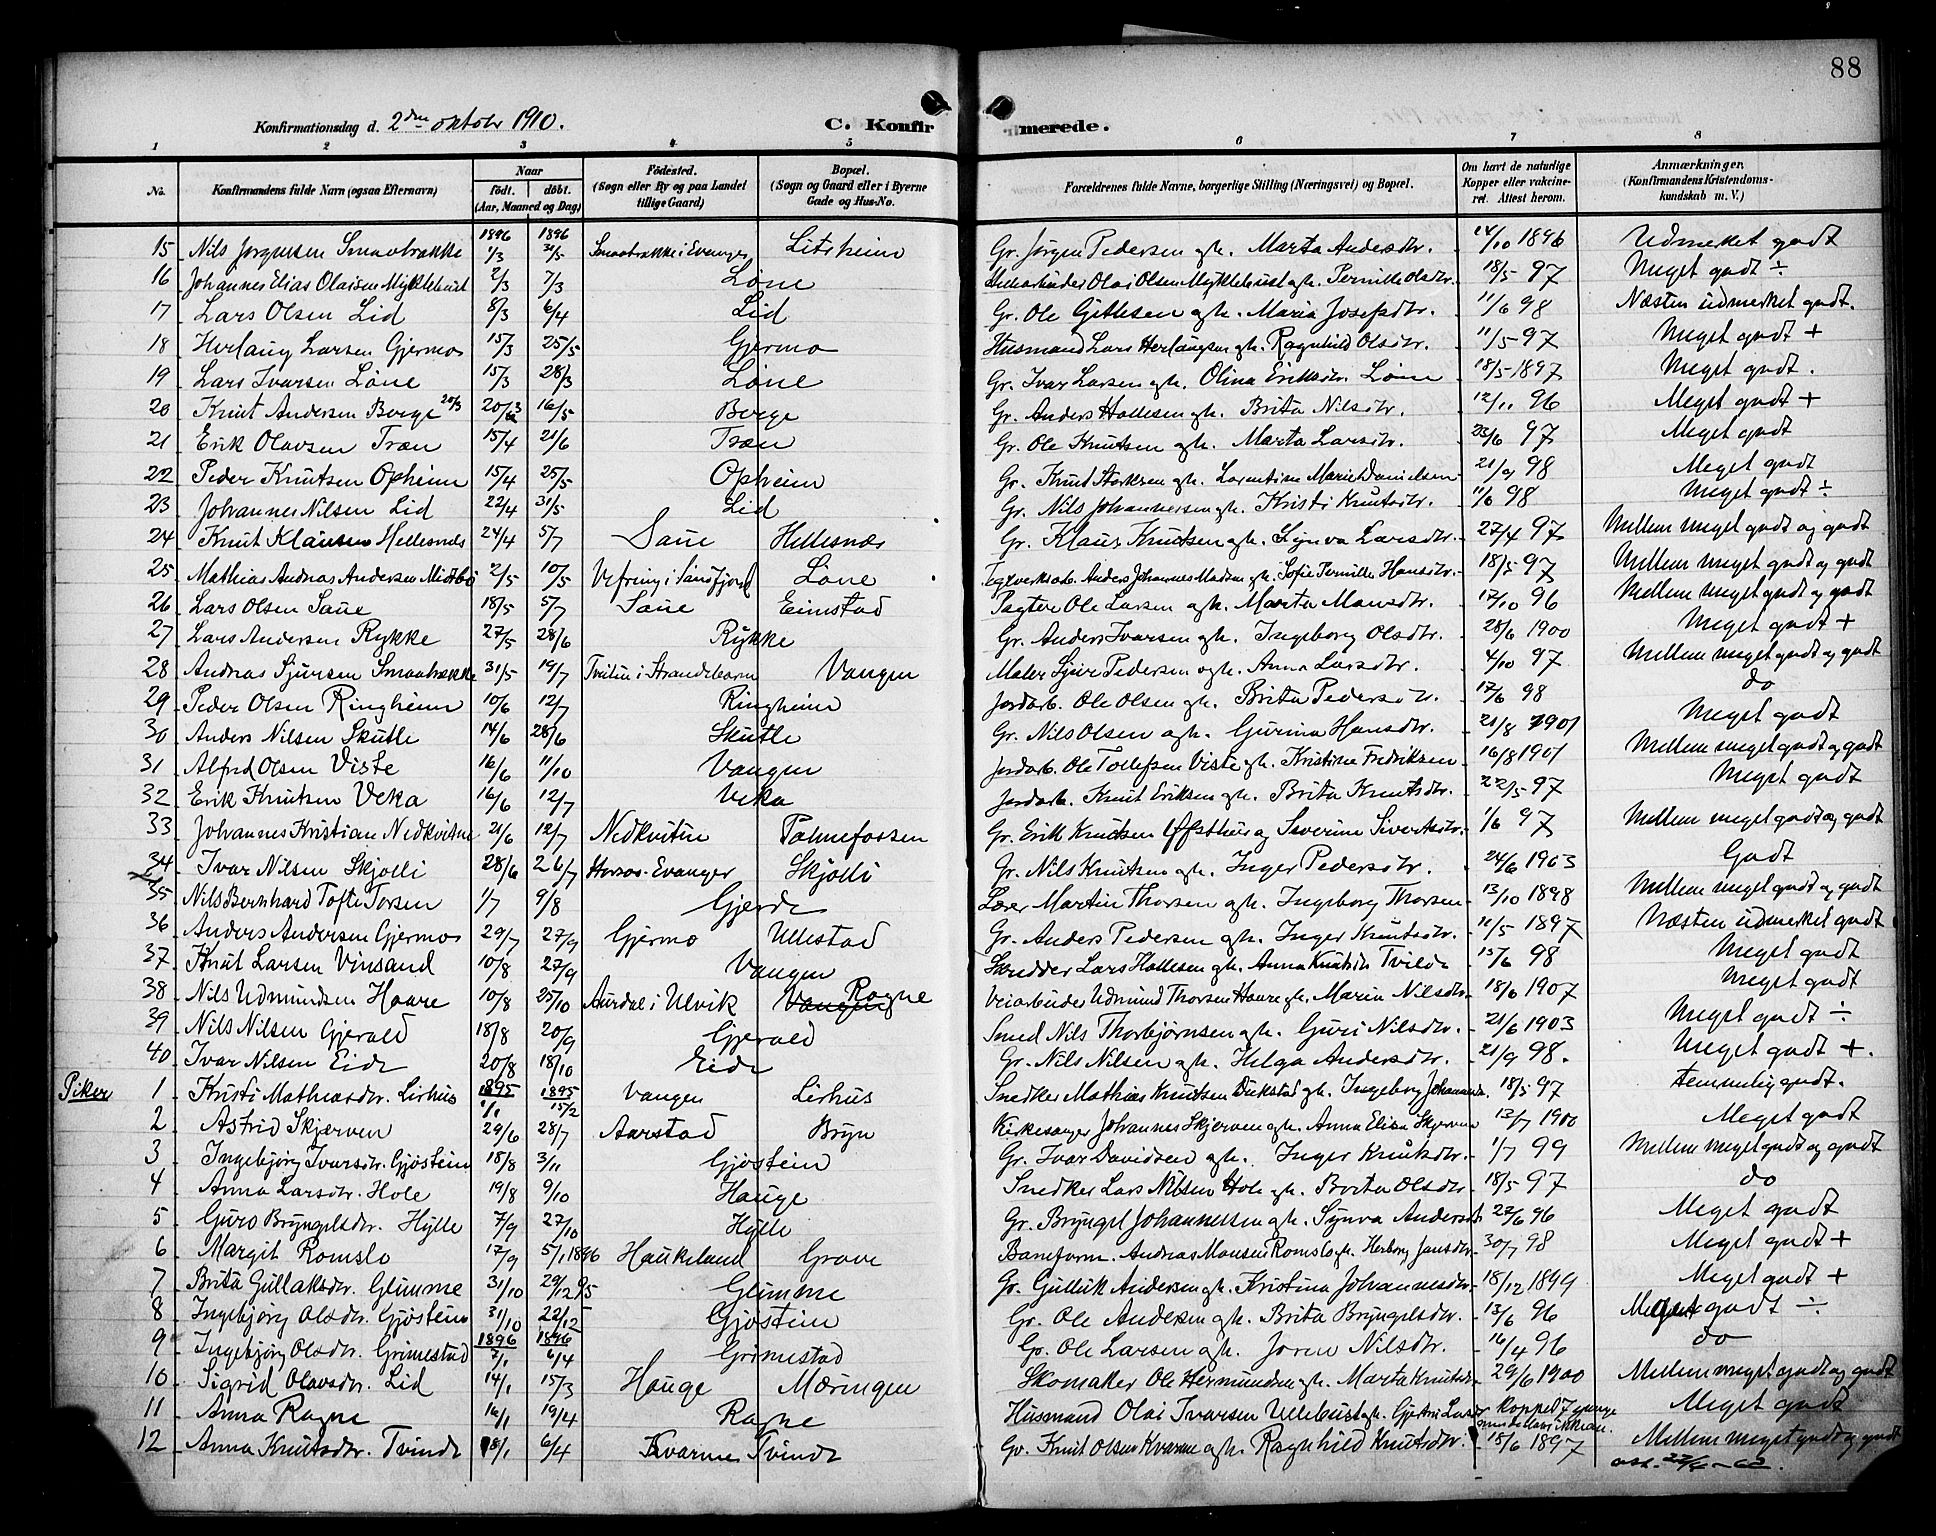 88
Konfirmationsdag d. 2den oktobr 1910. C. Konfir merede.
1 2 3 4 5 6 7 8
No. Konfirmandens fulde Navn (ogsaa Efternavn) Naar født. døbt. (Aar, Maaned og Dag) Fødested. (Sogn eller By og paa Landet tillige Gaard) Bopæl. (Sogn og Gaard eller i Byerne Gade og Hus-No. Forældrenes fulde Navne, borgerlige Stilling (Næringsvei) og Bopæl. Om havt de naturlige Kopper eller vakcineret. Attest herom. Anmærkninger. (Konfirmandens Kristendomskundskab m. V.)
1896 1896
15 Nils Jørgensen Smaabrække 1/3 31/5 Smaabrække i Evanger Litsheim Gr. Jørgen Pedersen gh. Marta Andersdtr. 14/10 1896 Udmerket godt
16 Johannes Elias Olaisen Myklebust 2/3 7/3 Løne Olai Olsen Myklebust gh. Pernille Olsdtr. 18/5 97 Meget godt ÷
17 Lars Olsen Lid 8/3 6/4 Lid Gr. Ole Gitlesen gh. Maria Josefsdtr. 11/6 98 Næsten udmerket godt.
18 Herlaug Larsen Gjermo 15/3 25/5 Gjermo Husmand Lars Herlaugsen gh. Ragnhild Olsdtr. 11/5 97 Meget godt +
19 Lars Ivarsen Løne 15/3 28/3 Løne Gr. Ivar Larsen gh. Olina Eriksdtr. Løne 18/5 1897 Meget godt.
20 Knut Andersen Borge 20/3 20/3 16/5 Borge Gr. Anders Hallesen gh. Brita Nilsdtr. 12/11 96 Meget godt +
21 Erik Olavsen Træn 15/4 21/6 Træn Gr. Ole Knutsen gh. Marta Larsdtr. 23/6 97 Meget godt
22 Peder Knutsen Opheim 15/4 25/5 Opheim Gr. Knud Størksen gh. Larentine Marie Danielsen 21/9 98 Meget godt
23 Johannes Nilsen Lid 22/4 31/5 Lid Gr. Nils Johannersen gh. Kristi Knutsdtr. 11/6 98 Meget godt ÷
24 Knut Klausen Hellesnæs 24/4 5/7 Saue Hellesnæs Gr. Klaus Knutsen gh. Synva Larsdtr. 27/4 97 Mellem meget godt og godt
25 Mathias Andreas Andersen Midtbø 2/5 10/5 Vefring i Søndfjord Løne Teglverksarb. Anders Johannes Madsen gh. Sofie Pernille Hansdtr. 18/5 97 Mellem meget godt og godt
26 Lars Olsen Saue 18/5 5/7 Saue Eimstad Pagter Ole Larsen gh. Marta Monsdtr. 17/10 96 Mellem meget godt og godt
27 Lars Andersen Rykke 27/5 28/6 Rykke Gr. Anders Ivarsen gh. Ingeborg Olsdtr. 28/6 1900 Meget godt +
28 Andreas Sjursen Smaabrække 31/5 19/7 Tvitun i Strandebarm Vangen Maler Sjur Pedersen gh. Anna Larsdtr. 4/10 97 Mellem meget godt og godt
29 Peder Olsen Ringheim 10/6 12/7 Ringheim Jordarb. Ole Olsen gh. Brita Pedersdtr. 17/6 98 do
30 Anders Nilsen Skutle 14/6 28/6 Skutle Gr. Nils Olsen gh. Gurina Hansdtr. 21/8 1901 Meget godt
31 Alfred Olsen Viste 16/6 11/10 Vangen Jordarb. Ole Tollefsen Viste gh. Kristine Fredriksen 16/8 1901 Mellem meget godt og godt
32 Erik Knutsen Veka 16/6 12/7 Veka Jordarb. Knut Eriksen gh. Brita Knutsdtr. 22/5 97 Meget godt
33 Johannes Kristian Nedkvitne 21/6 12/7 Nedkvitne Palmefossen Gr. Erik Knutsen Øfsthus og Severine Sivertsdtr. 1/6 97 Mellem meget godt og godt
34 Ivar Nilsen Skjelli 28/6 26/7 Horsos Evanger Skjelli Gr. Nils Knutsen gh. Inger Pedersdtr. 24/6 1903 Godt
35 Nils Bernhard Tofte Torsen 1/7 9/8 Gjerde Lærer Martin Thorsen gh. Ingeborg Thorsen 13/10 1898 Mellem meget godt og godt
36 Anders Andersen Gjermo 29/7 27/9 Gjermo Ullestad Gr. Anders Pedersen gh. Inger Knutsdtr. 11/5 1897 Næsten udmerket godt
37 Knut Larsen Vinsand 10/8 27/9 Vangen Skredder Lars Hallesen gh. Anna Knutsdtr Tvilde 15/6 98 Meget godt
38 Nils Udmundsen Haare 10/8 25/10 Aurdal i Ulvik Vangen Rogne Veiarbeider Udmund Thorsen Haare gh. Maria Nilsdtr. 18/6 1907 Meget godt
39 Nils Nilsen Gjerald 18/8 20/9 Gjerald Smed Nils Thorbjørnsen gh. Guri Nilsdtr. 21/6 1903 Meget godt ÷
40 Ivar Nilsen Eide 20/8 18/10 Eide Gr. Nils Nilsen gh. Helga Andersdtr. 21/9 98. Meget godt +.
Piker 1895 1895
1 Kristi Mathiasdtr. Lirhus 1/1 15/2 Vangen Lirhus Snedker Mathias Knutsen Dukstad gh. Ingeborg Johannesdtr. 18/5 97 temmelig godt.
2 Astrid Skjerven 29/6 28/7 Aarstad Bryn Kirkesanger Johannes Skjerven gh. Anna Elisa Skjerven 12/7 1900 Meget godt
3 Ingebjørg Ivarsdtr. Gjøstein 18/8 3/11 Gjøstein Gr. Ivar Davidsen gh. Inger Knutsdtr. 1/7 99 Mellem meget godt og godt
4 Anna Larsdtr. Hole 19/8 9/10 Hauge Snedker Lars Nilsen Hole gh. Brita Olsdtr. 18/5 97 do
5 Guro Bryngelsdtr. Hylle 7/9 27/10 Hylle Gr. Bryngel Johannessen gh. Synva Andersdtr. 27/6 96 Meget godt
6 Margit Romslo 17/9 5/1 1896 Haukeland Grove Baneform. Andreas Monsen Romslo gh. Herborg Jansdtr. 30/7 98 Meget godt +
7 Brita Gullaksdtr. Glimme 31/10 29/12 95 Glimme Gr. Gullik Andersen gh. Kristina Johannesdtr. 18/12 1899 Meget godt +
8 Ingebjørg Olsdtr. Gjøstein 31/10 22/12 Gjøstein Gr. Ole Andersen gh. Brita Bryngelsdtr. 13/6 96 Meget godt ÷
1896 1896
9 Ingebjørg Olsdtr. Grimestad 7/1 6/4 Grimestad Gr. Ole Larsen gh. Joren Nilsdtr. 16/4 96 do
10 Sigrid Olavsdtr. Lid 14/1 15/3 Hauge Mæringen Skomaker Ole Hermundsen gh. Marta Knutsdtr. 29/6 1900 Mellem meget godt og godt
11 Anna Rogne 16/1 19/4 Rogne Husmand Olai Ivarsen Ullebust gh. Gjertru Larsdtr Kopped 7 gange Meget godt
12 Anna Knutsdtr. Tvinde 18/1 6/4 Kvarme Tvinde Gr. Knut Olsen Kvarme gh. Ragnhild Knutsdtr. 18/6 1897 Mellem meget godt og godt